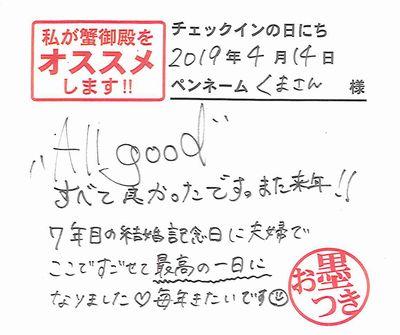 私が蟹御殿を
オススメ
します!!
チェックインの日にち
2019年4月14日
ペンネーム くまさん 様
"All good"
すべて良かったです。また来年!!
7年目の結婚記念日に夫婦で
ここですごせて最高の一日に
なりました♡毎年きたいです☺
お墨つき